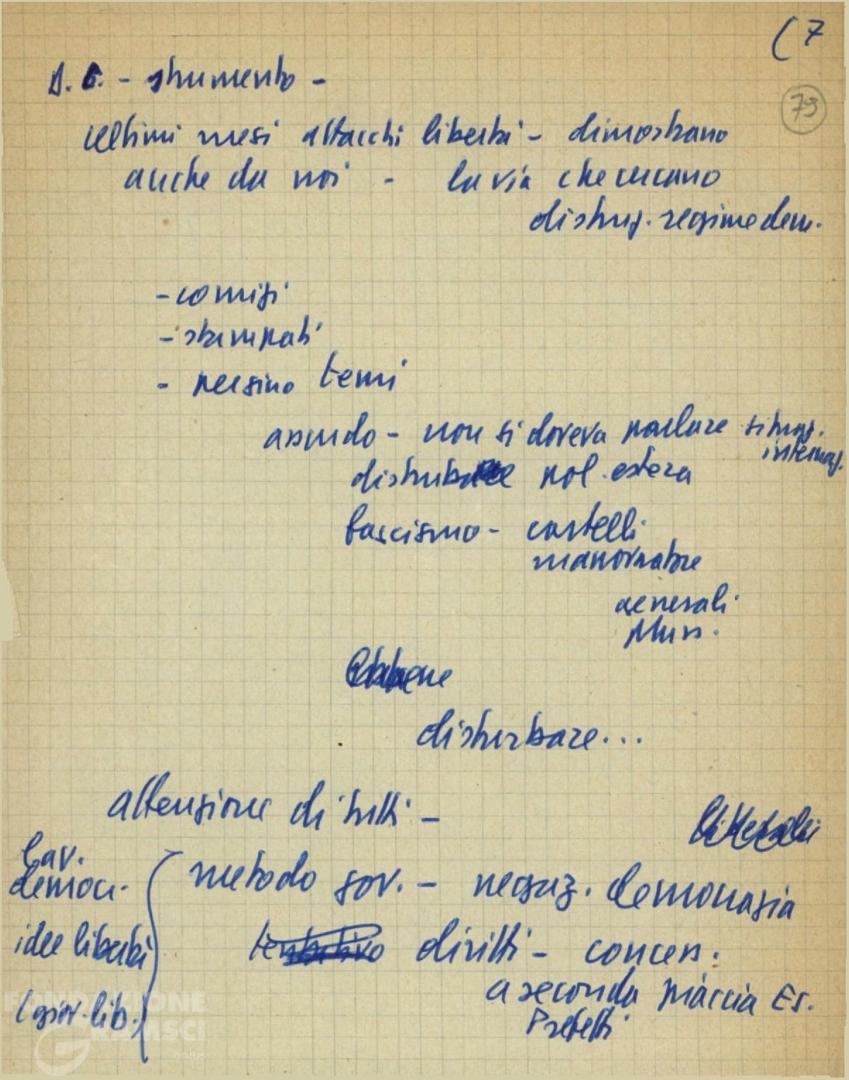 (7
79
D.C. - strumento -
Ultimi mesi attacchi libertà - dimostrano
anche da noi - la via che cercano
distrug. regime dem.
- comizi
- stampati
- persino temi
assurdo - non si doveva parlare situaz. internaz.
disturbare pol. estera
fascismo - cartelli
manovratore
generali
Muss.
disturbare...
attenzione di tutti -
metodo gov. - negaz. democrazia
tentativo diritti - concess.
a seconda
Prefetti
Lav.
democr.
idee libertà
FONDAZIONE
GRAMSCI